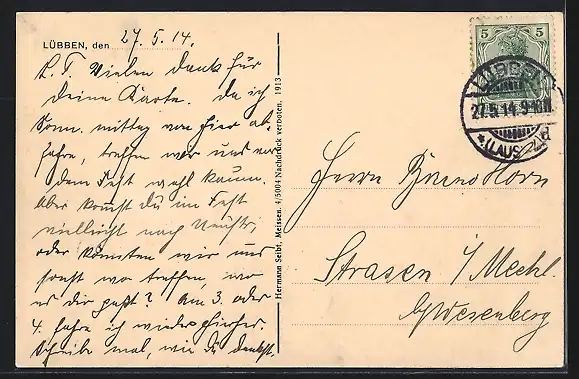 LÜBBEN, den 27. 5. 14.
L. T. Vielen Dank für
deine Karte. Da ich
Sonn. mittag von hier ab-
fahre, treffen wir uns vor
dem Fest wohl kaum.
Aber kommst du im Fest
vielleicht nach
oder könnten wir uns
sonst wo treffen, wo
es dir paßt? Am 3. oder
4. fahre ich wieder hierher.
Schreibe mal, wie du denkst.
Hermann Seibt, Meissen. 4/5004 Nachdruck verboten. 1913
5 5
LÜBBEN
27.5.14.
(LAUSITZ)
Herrn Bruno Horn
Strasen i/Meckl.
b/Wesenberg